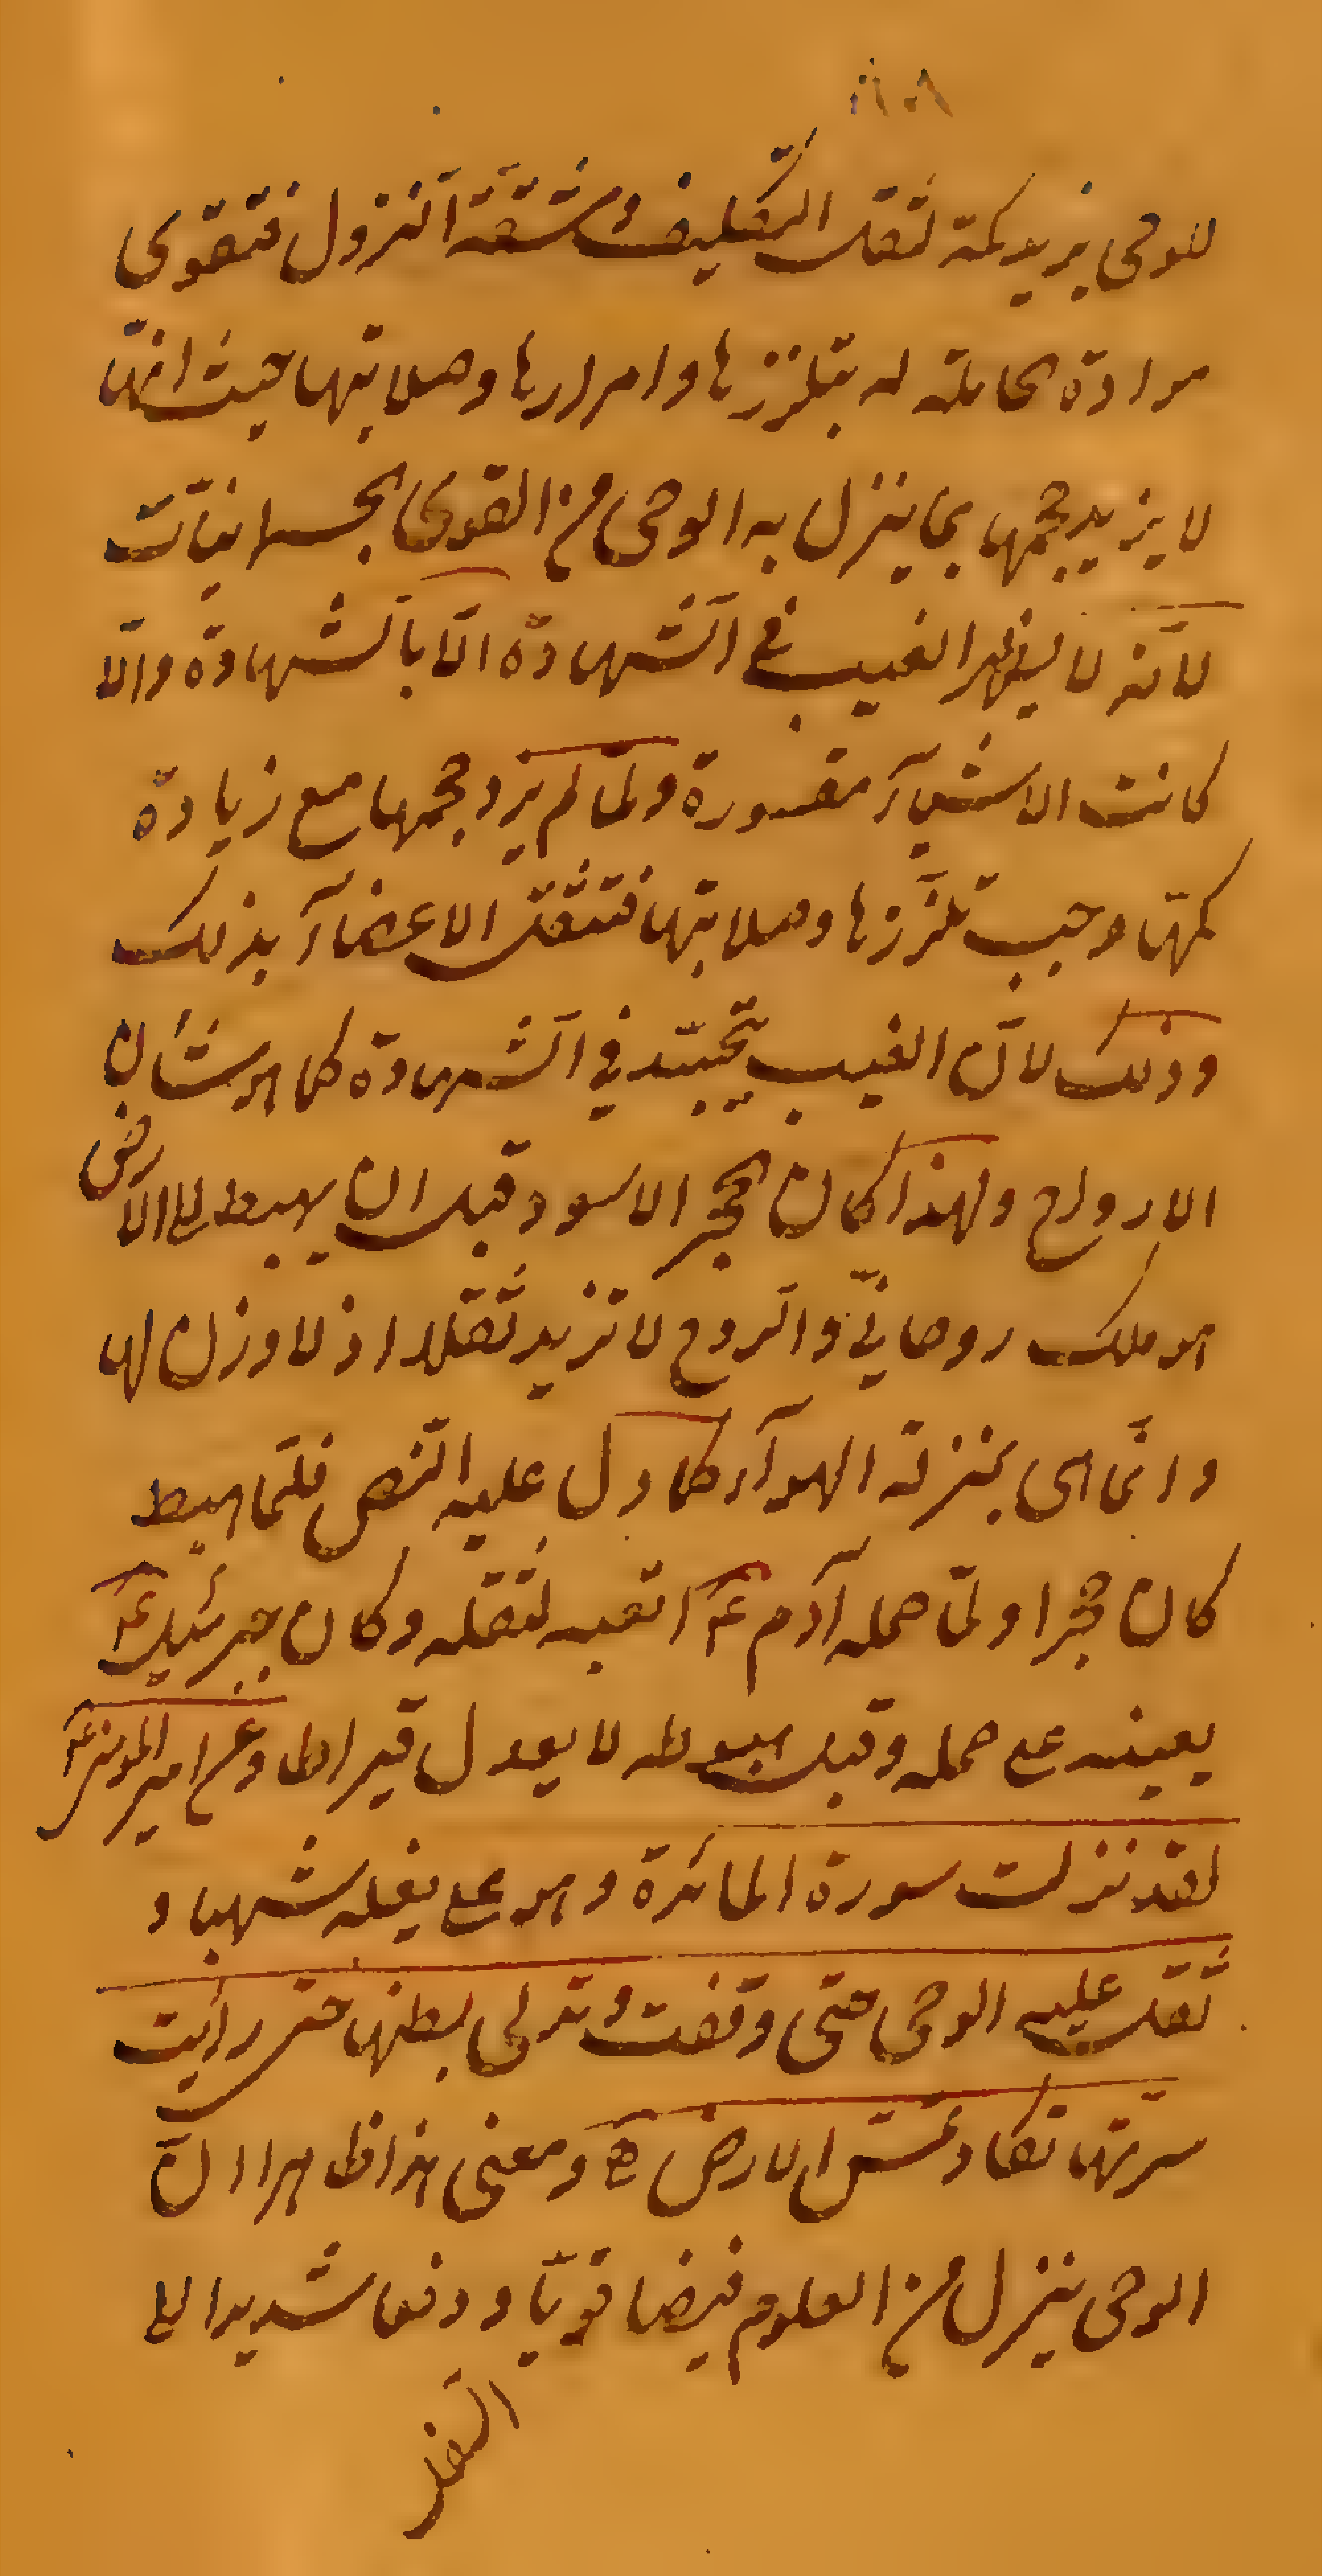 للوحى يزيد كمّه لثقل التكليف ومشقّة النزول فتقوى
مرادة الحاملة له بتلززها وامرارها وصلابتها حيث انها
لا يزيد حجمها بما ينزل به الوحى من القوى الجسمانيّات
لانّه لا يظهر الغيب فى الشّهادة الّا بالشّهادة والّا
كانت الاشيآء مقسورة ولمّا لم يزد حجمها مع زيادة
كمّها وجب تلزّزها وصلابتها فتثقل الاعضآء بذلك
وذلك لانّ الغيب يتجسّد فى الشّهادة كما هو شأن
الارواح ولهذا كان الحجر الاسود قبل ان يهبط الى الارض
هو ملك روحانىّ والرّوح لا تزيد ثقلا اذ لا وزن لها
وانّما هى بمنزلة الهوآء كما دلّ عليه النّص فلمّا هبط
كان حجرا ولمّا حمله آدم ع اتعبه لثقله وكان جبرئيل ع
يعينه على حمله وقبل هبوطه لا يعدل قيراطا وعن امير المؤمنين ع
لقد نزلت سورة المائدة وهو على بغله شهبا و
ثقل عليه الوحى حتى وقفت وتدلى بطنها حتى رأيت
سرّتها تكاد تمسّ الارض ه ومعنى هذا ظاهرا انّ
الوحى ينزل من العلوم فيضا قويّا ودفعا شديدا الى